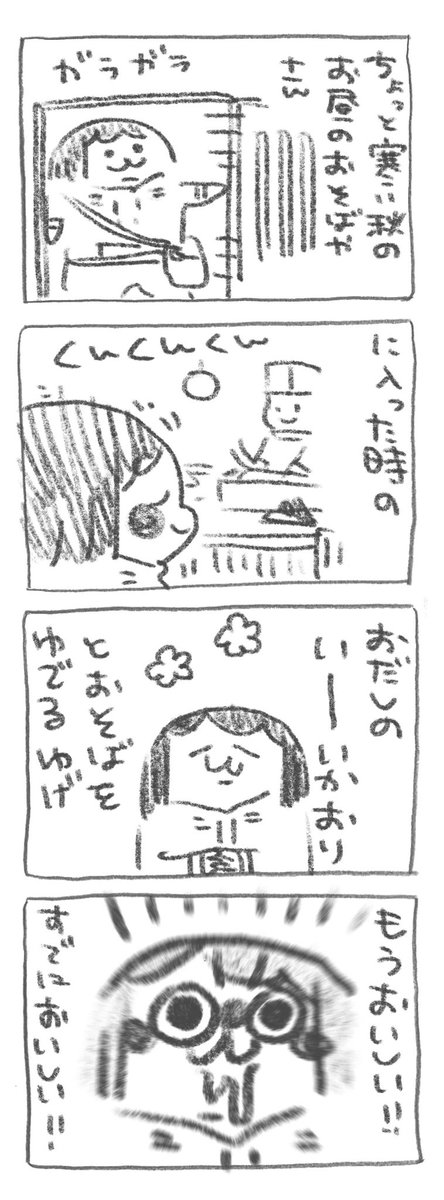 ちょっと寒い秋の
お昼のおそばや
さん
ガラガラ
に入った時の
くんくんくん
おだしの
いーいかおり
とおそばを
ゆでるゆげ
もうおいしい!!
すでにおいしい!!